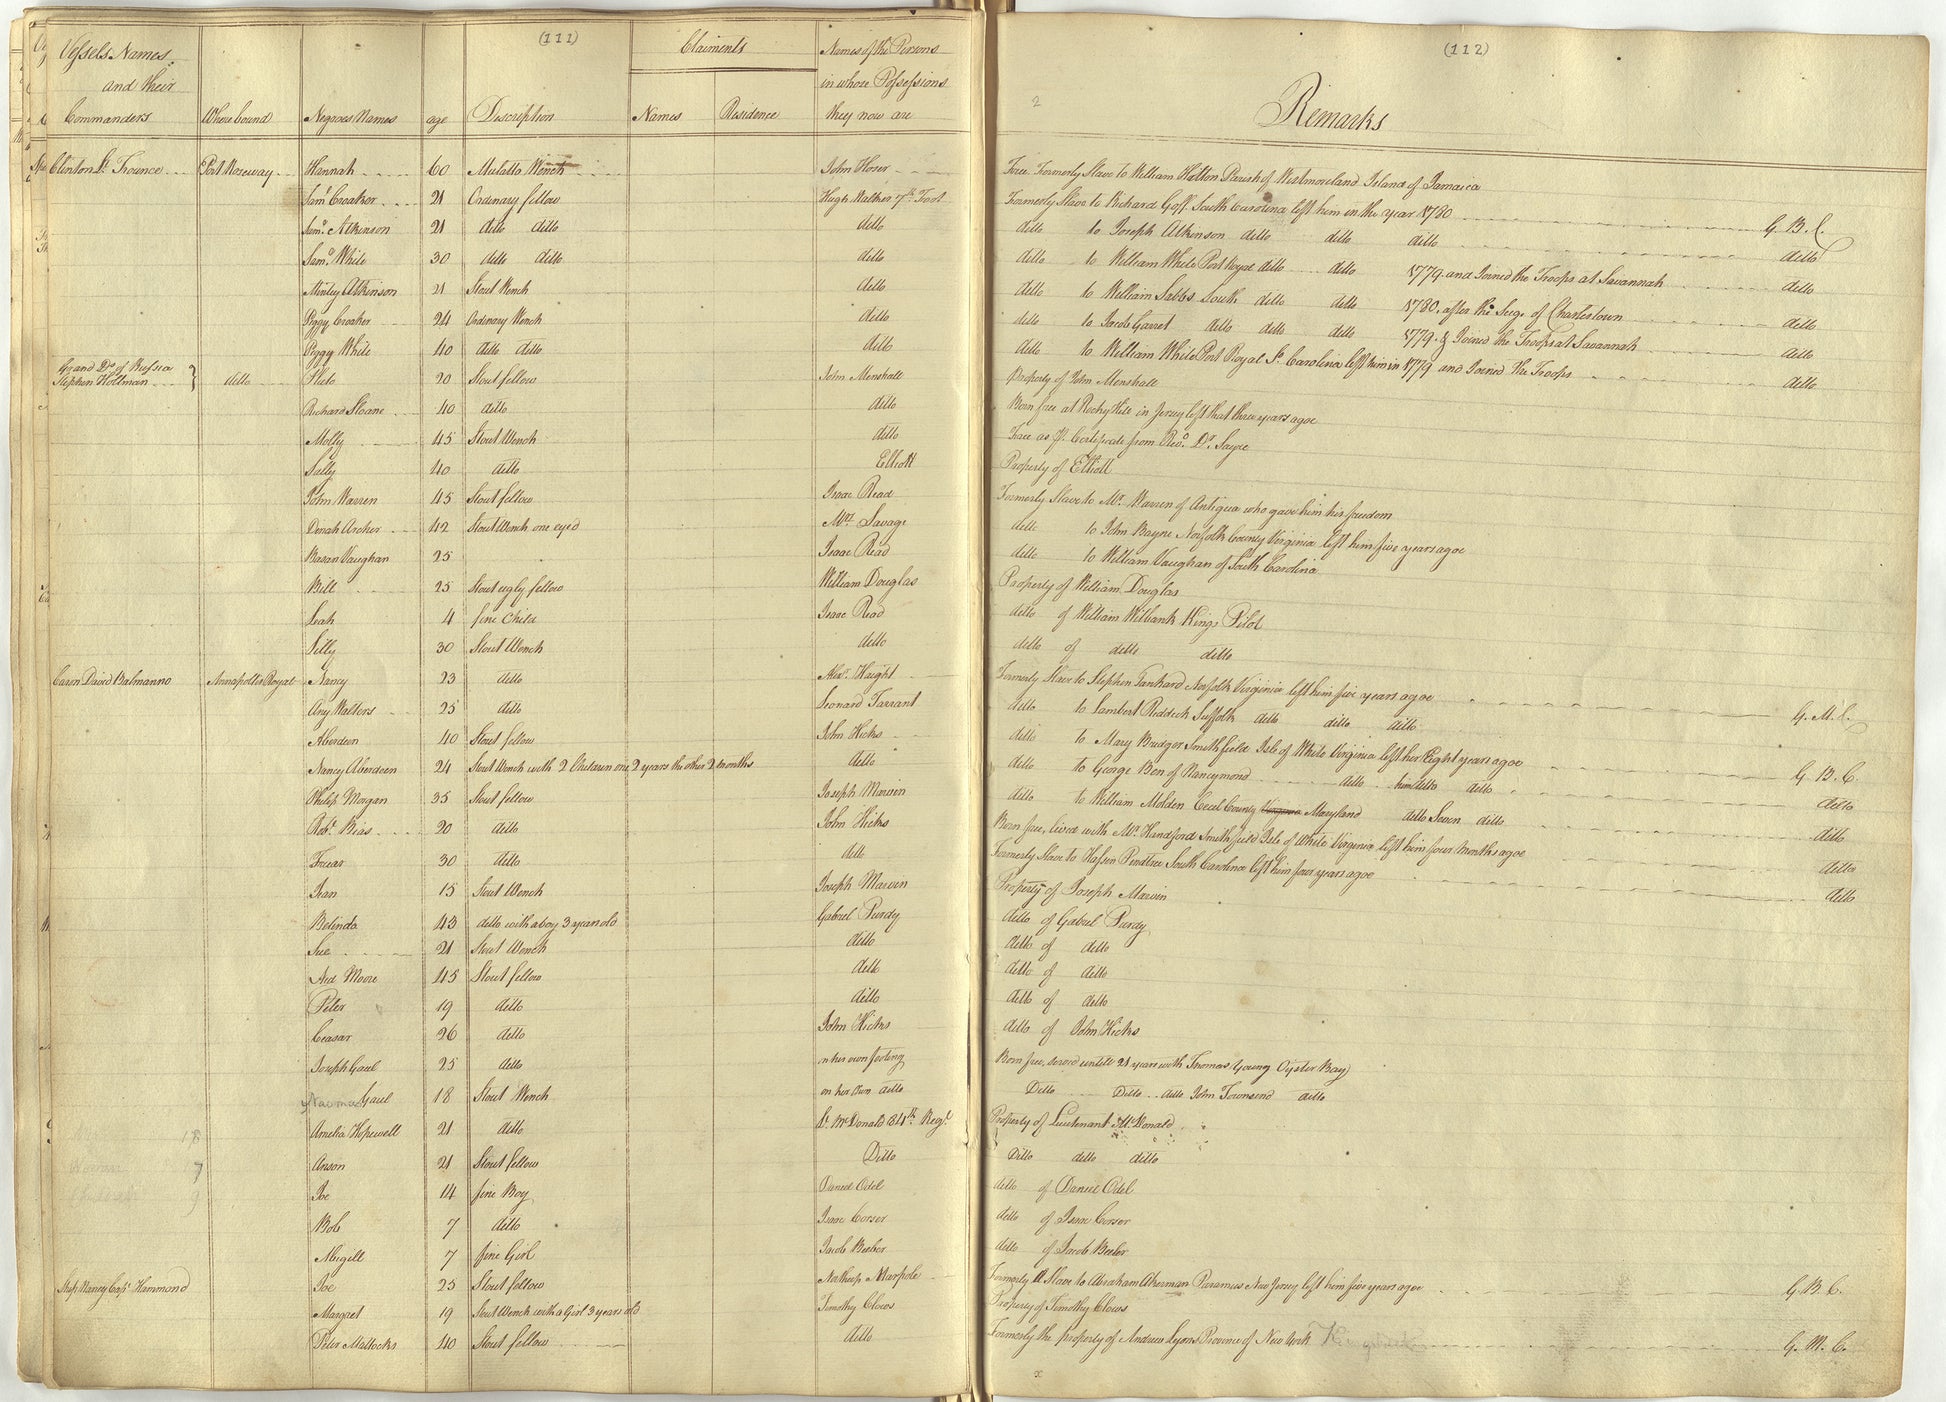 (111)
Vessels Names
and their
Commanders
Where bound
Negroes Names
age
Discription
Claiments
Names
Residence
Names of the Persons
in whose Possessions
they now are
Clinton Lt. Trounce Port Roseway Hannah 60 Mulatto Wench John Hoser
Saml. Croaker 21 Ordinary fellow Hugh Walker 7th Foot
Saml. Atkinson 21 ditto ditto ditto
Saml. White 30 ditto ditto ditto
Minley Atkinson 21 Stout Wench ditto
Peggy Croaker 24 Ordinary Wench ditto
Peggy White 40 ditto ditto ditto
Grand Ds. of Russia
Stephen Holtman ditto Pluto 20 Stout fellow John Menshall
Richard Sloane 40 ditto ditto
Molly 45 Stout Wench ditto
Sally 40 ditto Elliott
John Warren 45 Stout fellow Isaac Read
Dinah Archer 42 Stout Wench one eyed Mrs. Savage
Basan Vaughan 25 Isaac Read
Bill 25 Stout ugly fellow William Douglas
Leah 4 fine Child Isaac Read
Silly 30 Stout Wench ditto
Caron David Balmanno Annapolis Royal Nancy 23 ditto Alexr. Haight
Any Walters 25 ditto Leonard Tarrant
Aberdeen 40 Stout fellow John Hicks
Nancy Aberdeen 24 Stout Wench with 2 Children one 2 years the other 2 months ditto
Philip Morgan 35 Stout fellow Joseph Marvin
Robt. Bias 20 ditto John Hicks
Friar 30 ditto ditto
Jean 15 Stout Wench Joseph Marvin
Belinda 43 ditto with a boy 3 years old Gabriel Purdy
Sue 21 Stout Wench ditto
Ned Moore 45 Stout fellow ditto
Peter 19 ditto ditto
Ceasar 26 ditto John Hicks
Joseph Gaul 25 ditto on her own footing
Gaul 18 Stout Wench on her own ditto
Amelia Hopewell 21 ditto Lt. McDonald 84th. Regt.
Anson 21 Stout fellow Ditto
Joe 14 fine Boy Daniel Odel
Bob 7 ditto Isaac Corser
Abigill 7 fine Girl Jacob Beeber
Ship Nancy Capt. Hammond Joe 25 Stout fellow Northup Marpole
Margaret 19 Stout Wench with a Girl 3 years old Timothy Clows
Peter Mattocks 40 Stout fellow ditto
(112)
2
Remarks
Free. Formerly Slave to William Hatton Parish of Westmoreland Island of Jamaica
Formerly Slave to Richard Goff South Carolina left him in the year 1780 G. B. C.
ditto to Joseph Atkinson ditto ditto ditto ditto
ditto to William White Port Royal ditto ditto 1779. and Joined the Troops at Savannah ditto
ditto to William Sabbs South ditto ditto 1780. after the Seige of Charlestown ditto
ditto to Jacob Garret ditto ditto ditto 1779. & Joined the Troops at Savannah ditto
ditto to William White Port Royal So. Carolina left him in 1779 and Joined the Troops ditto
Property of John Menshall
Born free at Rocky Hill in Jersey left that three years agoe
Free as P. Certificate from Revd. Dr. Sayre
Property of Elliott
Formerly Slave to Mr. Warren of Antigua who gave him his freedom
ditto to John Bayne Norfolk County Virginia left him five years agoe
ditto to William Vaughan of South Carolina
Property of William Douglas
ditto of William Wilbank Kings Pilot
ditto of ditto ditto
Formerly Slave to Stephen Tankard Norfolk Virginia left him five years agoe G. M. C.
ditto to Lambert Reddick Suffolk ditto ditto ditto
ditto to Mary Bridger Smithfield Isle of White Virginia left her Eight years agoe G. B. C.
ditto to George Bon of Nancymond ditto him ditto ditto ditto
ditto to William Molden Cecel County Virginia Maryland ditto Seven ditto ditto
Born free, lived with Mr. Hindford Smithfield Isle of White Virginia left him four Months agoe ditto
Formerly Slave to Hassen Pendtree South Carolina left him four years agoe ditto
Property of Joseph Marvin
ditto of Gabriel Purdy
ditto of ditto
ditto of ditto
ditto of ditto
ditto of John Hicks
Born free, served untill 21 years with Thomas Young Oyster Bay
Ditto Ditto ditto John Townsend ditto
Property of Lieutenant McDonald
Ditto ditto ditto
ditto of Daniel Odel
ditto of Isaac Corser
ditto of Jacob Beeber
Formerly Slave to Abraham Akerman Paramus New Jersey left him five years agoe G. B. C.
Property of Timothy Clows
Formerly the property of Andrew Lyons Province of New York G. M. C.
x